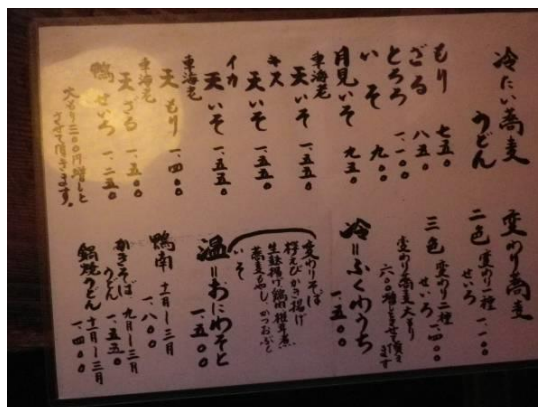 冷たい蕎麦
うどん
もり 七五〇
ざる 八五〇
とろろ 一、一〇〇
いそ 九〇〇
月見いそ 九五〇
東海老
天いそ 一、五五〇
キス
天いそ 一、五五〇
イカ
天いそ 一、五五〇
東海老
天もり 一、四〇〇
東海老
天ざる 一、五五〇
鴨せいろ 一、二五〇
大もり二〇〇円増しと
させて頂きます。
変わり蕎麦
二色 変わり一種
せいろ 一、一〇〇
三色 変わり二種
せいろ 一、四〇〇
変わり蕎麦大もり
六〇〇増とさせて頂き
ます
冷=ふくわうち
一、五〇〇
変わりそば
桜えびかき揚げ
生麩揚げ 鶏団椎茸煮
蕎麦もやし かつおぶし
いそ
温=おにわそと
一、五〇〇
鴨南 十一月〜三月
一、八〇〇
かきそば 九月〜三月
うどん 一、五五〇
鍋焼うどん 十一月〜三月
一、四〇〇